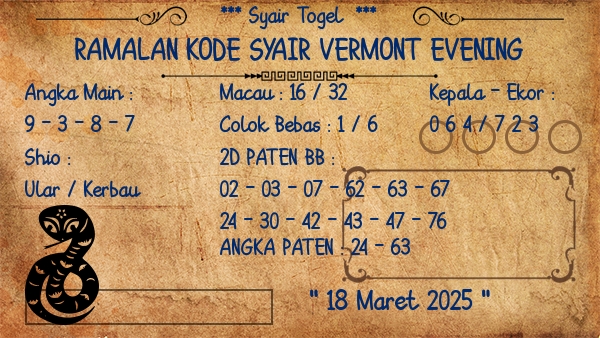 *** Syair Togel ***
RAMALAN KODE SYAIR VERMONT EVENING
Angka Main :
9 - 3 - 8 - 7
Shio :
Ular / Kerbau
Macau : 16 / 32
Colok Bebas : 1 / 6
2D PATEN BB :
02 - 03 - 07 - 62 - 63 - 67
24 - 30 - 42 - 43 - 47 - 76
ANGKA PATEN : 24 - 63
Kepala - Ekor :
0 6 4 / 7 2 3
" 18 Maret 2025 "